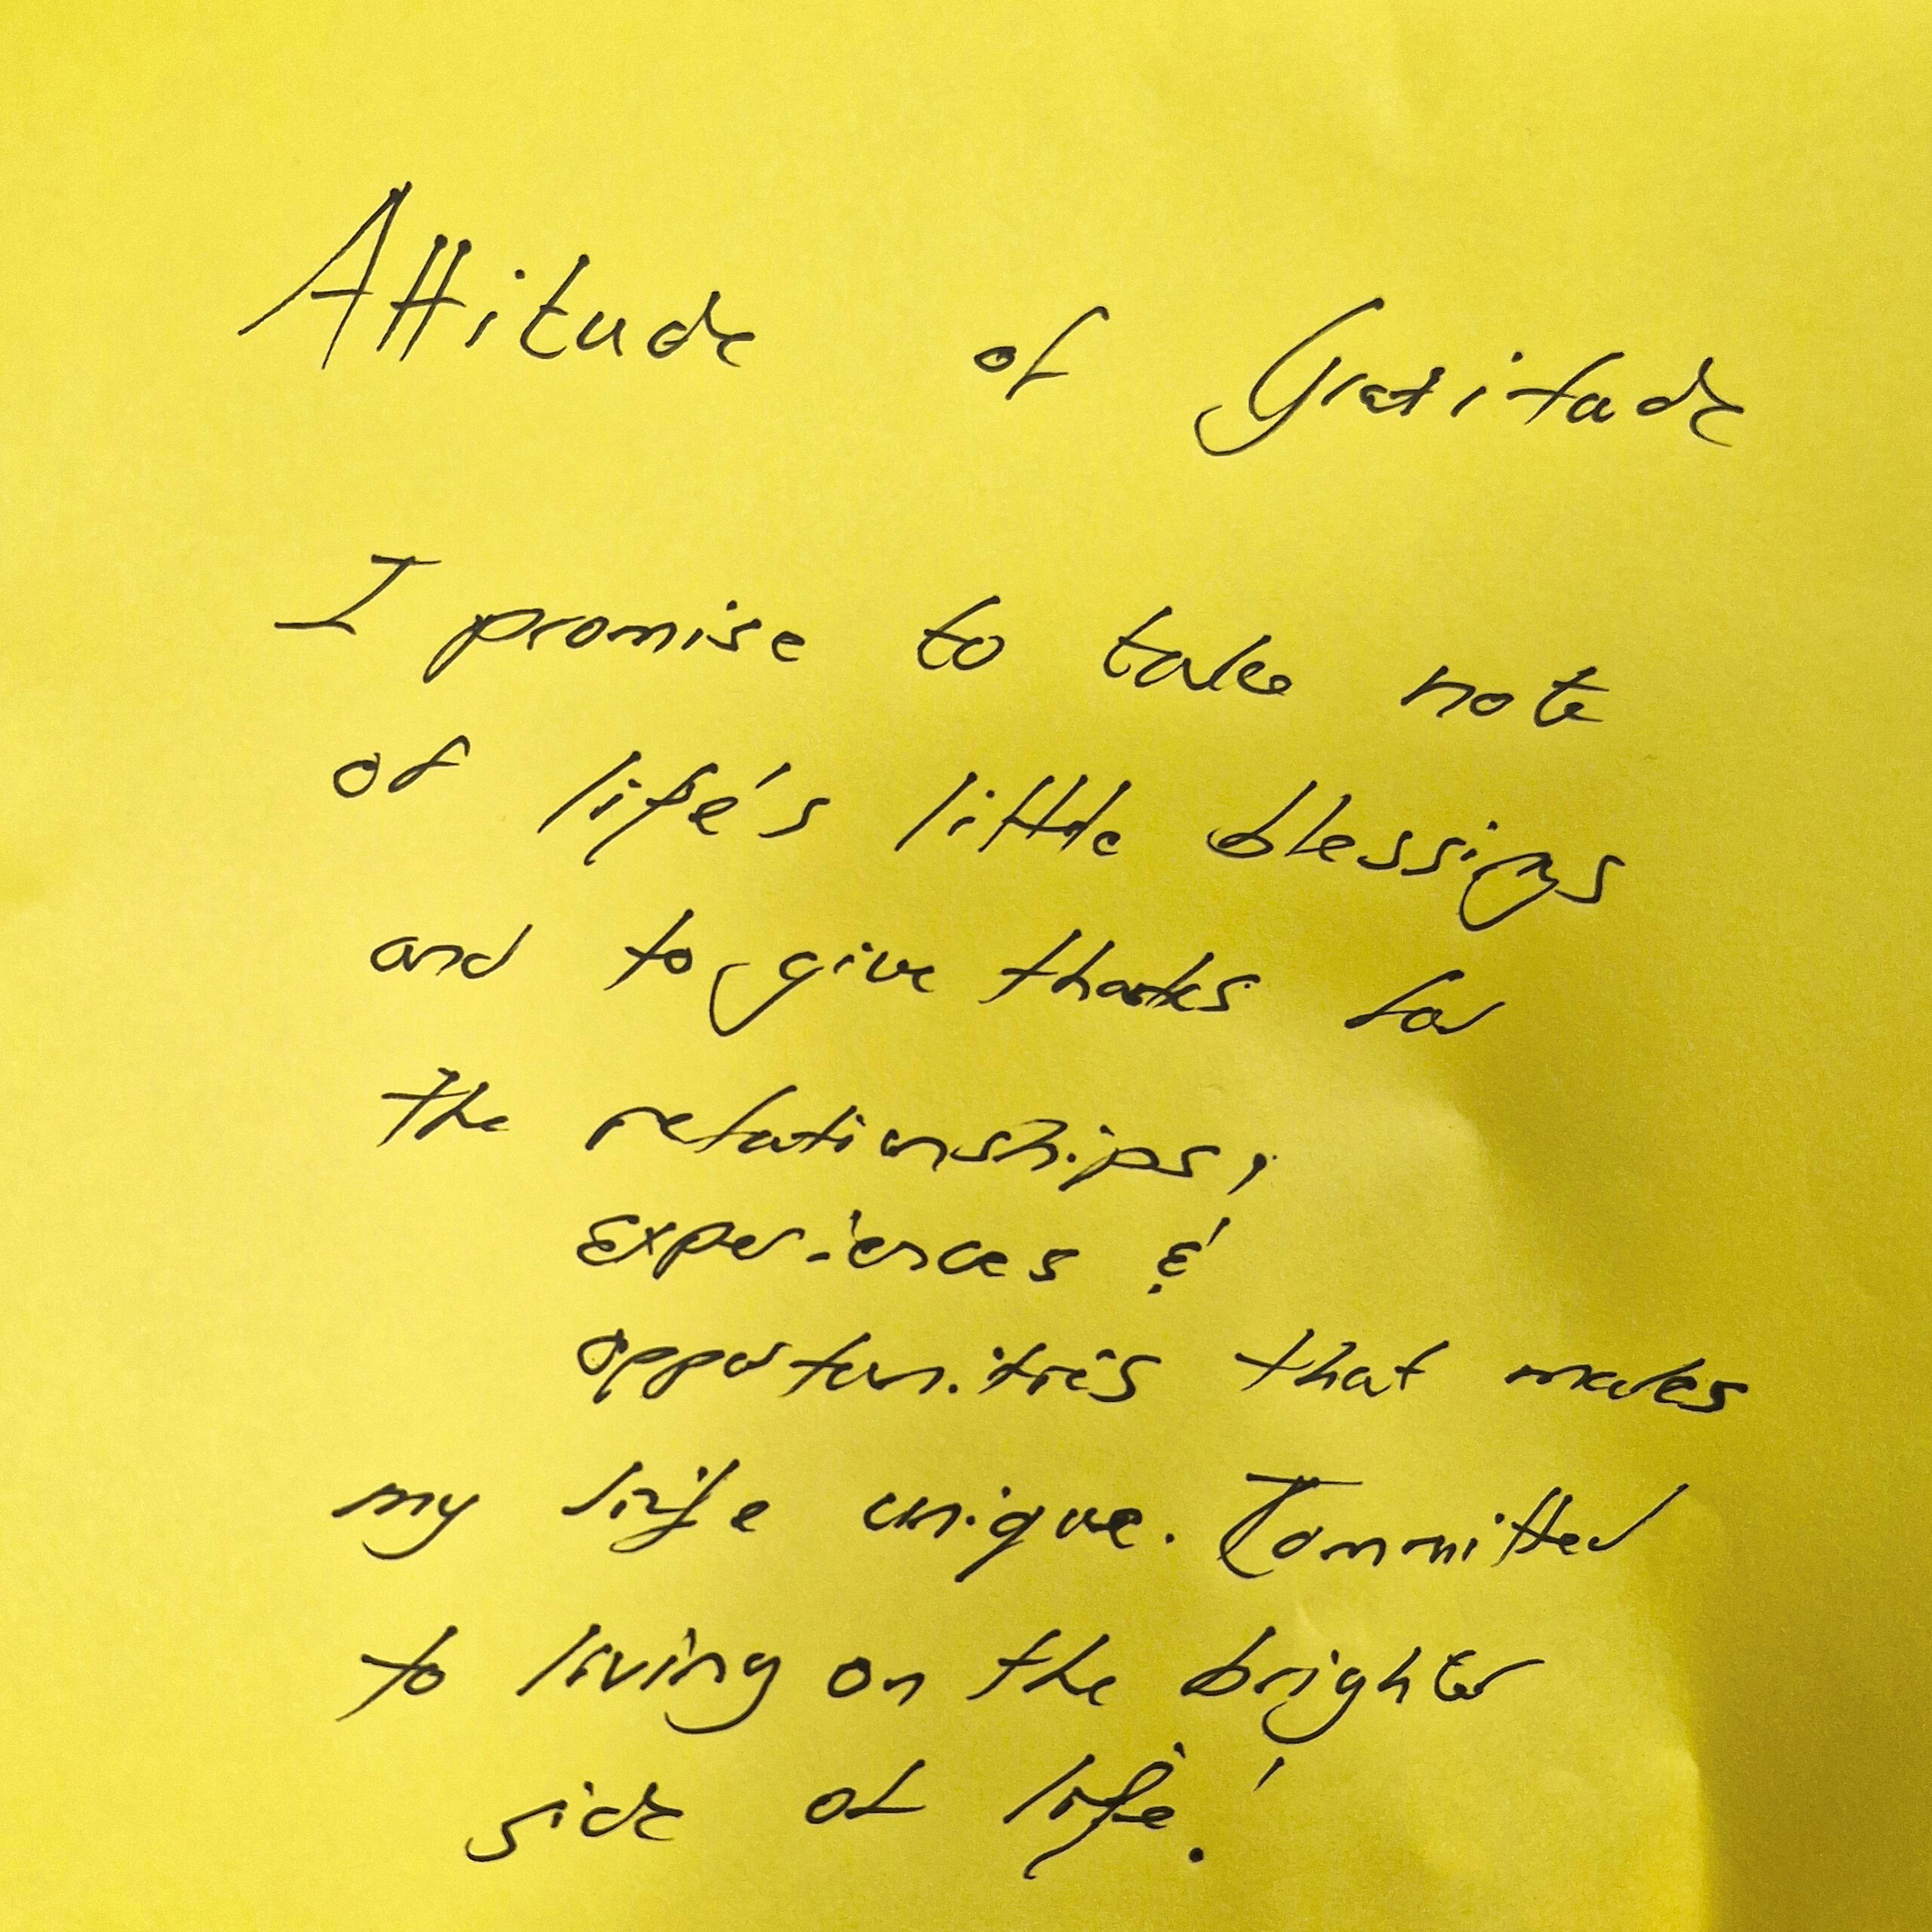 Attitude of Gratitude
I promise to take note
of life's little blessings
and to give thanks for
the relationships,
experiences &
opportunities that makes
my life unique. Committed
to living on the brighter
side of life!